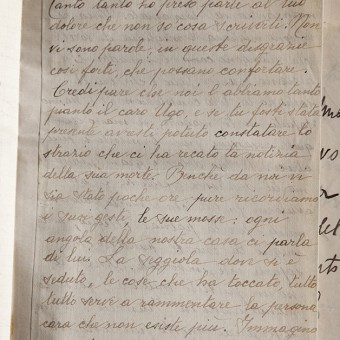 tanto tanto ho preso parte al tuo
dolore che non so cosa scriverti. Non
vi sono parole, in queste disgrazie
cosi forti, che possano confortare.
Credi pure che noi l'abbiamo tanto
pianto il caro Ugo, e se tu fosti stata
presente avresti potuto constatare lo
strazio che ci ha recato la notizia
della sua morte. Benchè da noi vi
sia stato poche ore pure ricordiamo
i suoi gesti, le sue mosse: ogni
angolo della nostra casa ci parla
di lui. La seggiola dove si è
seduto, le cose che ha toccato, tutto
tutto serve a rammentare la persona
cara che non esiste più. Immagino